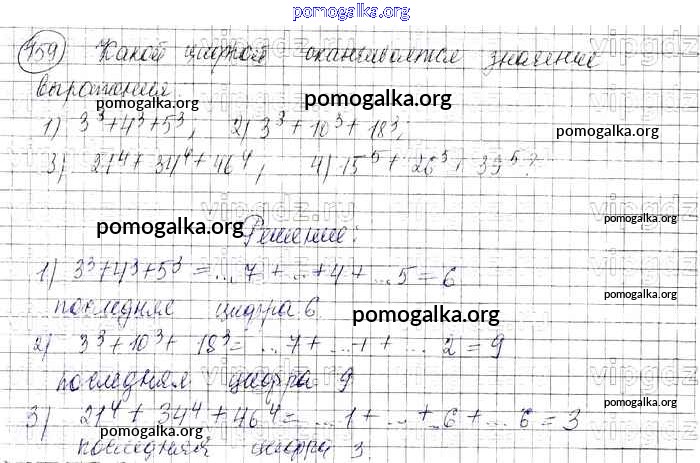 pomogalka.org
459) Какой цифрой оканчивается значение
выражения
pomogalka.org pomogalka.org
1) 3³+4³+5³, 2) 3³+10³+18³;
pomogalka.org
3) 21⁴+34⁴+46⁴, 4) 15⁵+26⁵+39⁵?
vipgdz.ru
pomogalka.org
pomogalka.org
Решение:
1) 3³+4³+5³ = ...7 + ...+4 + ...5 = 6
pomogalka.org
последняя цифра 6.
pomogalka.org
2) 3³+10³+18³= ...7+ ...+ ... 2 = 9
последняя цифра 9
3) 21⁴+34⁴+46⁴= ...1+ ...+6+ ...6 = 3
pomogalka.org
pomogalka.org
последняя цифра 3.